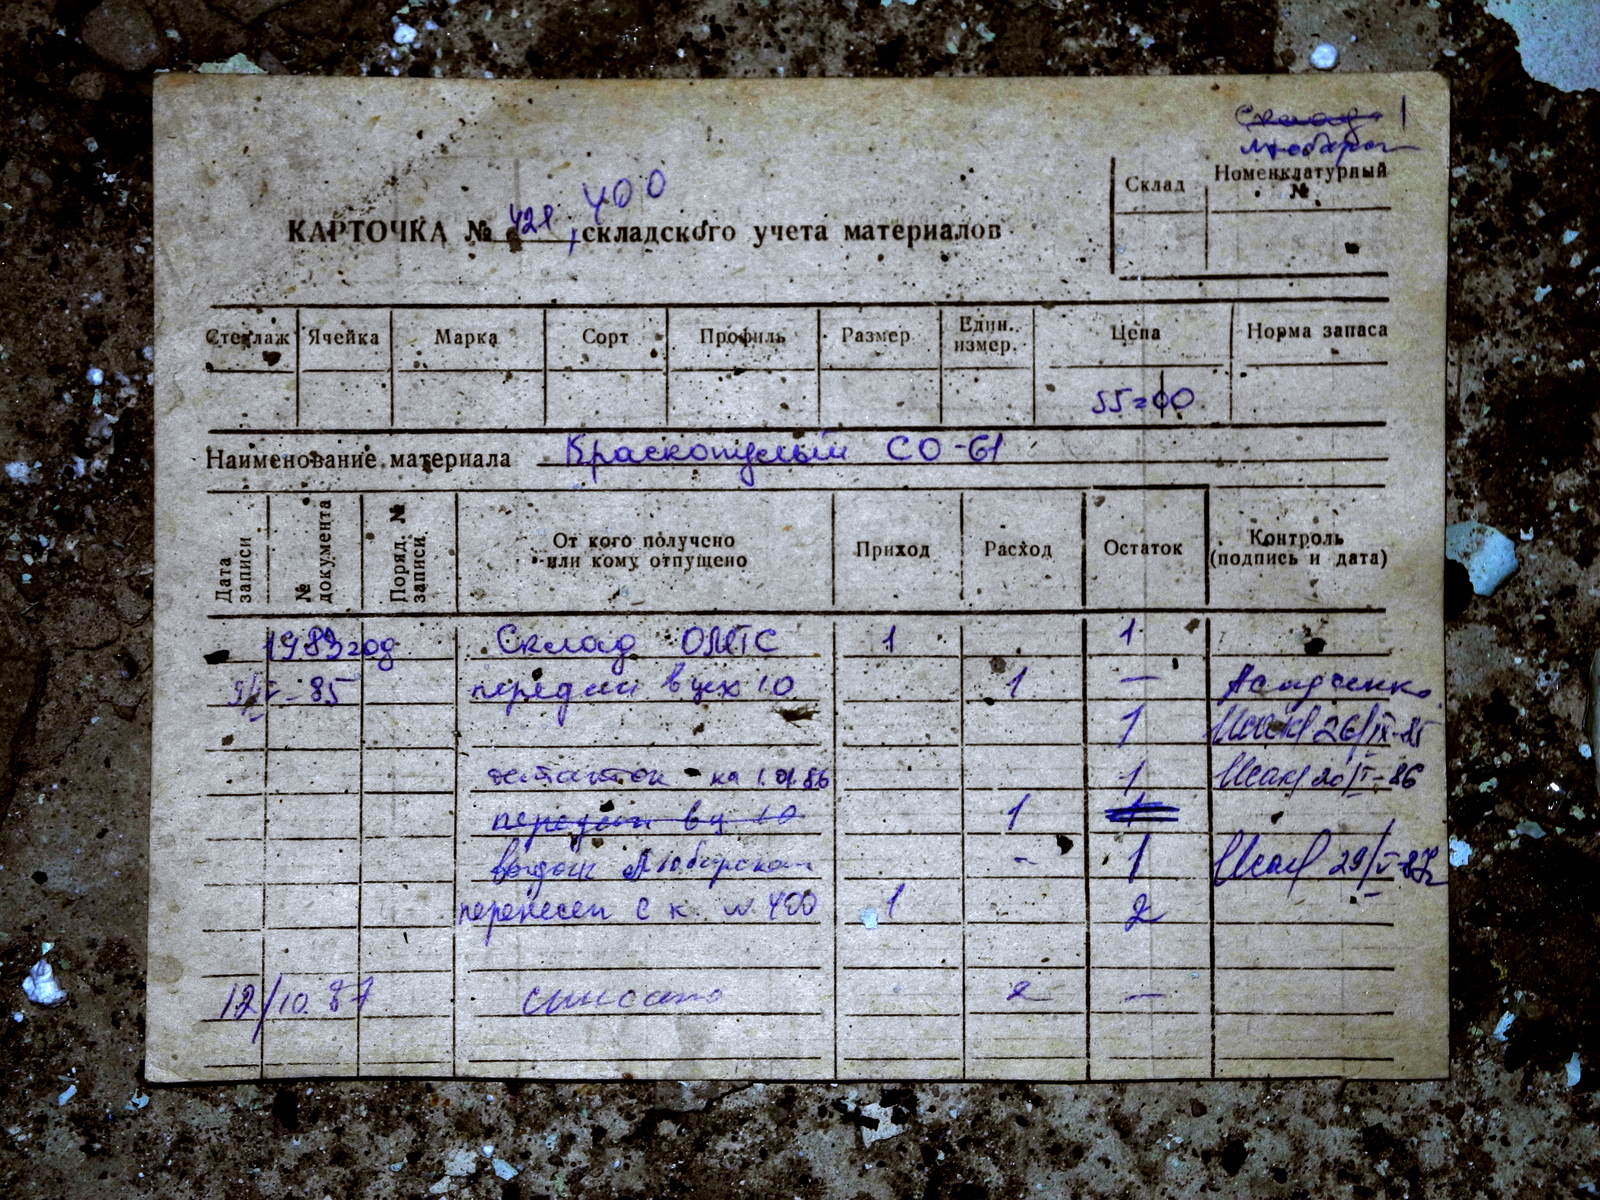 Склад 1
Номенклатурный
Склад №
400
КАРТОЧКА № 421, складского учета материалов
Стеллаж Ячейка Марка Сорт Профиль Размер Един. измер. Цена Норма запаса
55=00
Наименование материала Краскопульт СО-61
Дата записи № документа Поряд. № записи От кого получено или кому отпущено Приход Расход Остаток Контроль (подпись и дата)
1983 год Склад ОМТС 1 1
85 передан в цех 10 1 —
1 26/IX-85
остаток на 1.01.86 1 20/I-86
передан в ц 10 1 1
- 1 29/V-87г
перенесен с к. № 400 1 2
12/10.87 списано 2 —